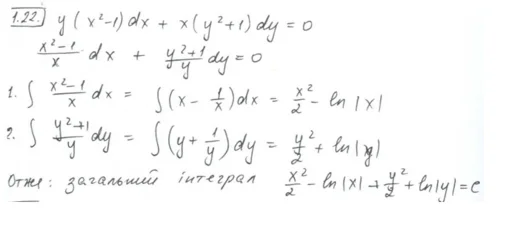 1.22. y(x²-1)dx + x(y²+1)dy = 0
x²-1/x dx + y²+1/y dy = 0
1. ∫ x²-1/x dx = ∫(x - 1/x)dx = x²/2 - ln|x|
2. ∫ y²+1/y dy = ∫(y + 1/y)dy = y²/2 + ln|y|
Отже: загальний інтеграл x²/2 - ln|x| + y²/2 + ln|y| = C